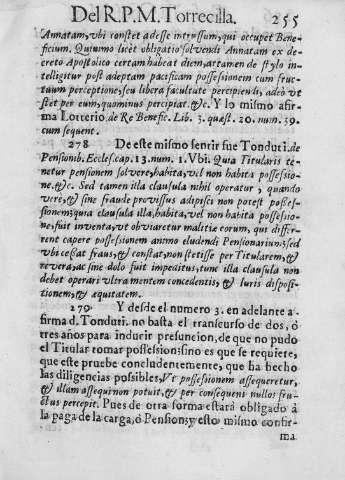 Del R.P.M. Torrecilla. 255
Annatam, vbi constet adesse intrussum, qui occupet Bene-
ficium. Quiimo licet obligatio solvendi Annatam ex de
creto Apostolico certam habeat diem, attamen de stylo in
telligitur post adeptam pacificam possessionem cum fruc-
tuum perceptione, seu libera facultate percipiendi, adeò vt
stet per eum, quominus percipiat. &c. Y lo mismo afir
ma Lotterio, de Re Benefic. Lib. 3. quæst. 20. num. 39.
cum sequent.
278 De este mismo sentir fue Tonduti. de
Pensionib. Eccles. cap. 13. num. 1. Vbi. Quia Titularis te-
netur pensionem solvere, habita, vel non habita possessio-
ne. &c. Sed tamen illa clausula nihil operatur, quando
verè, & sine fraude provissus adipisci non potest posses-
sionem; qua clausula illa, habita, vel non habita possessio
ne, fuit inventa, vt obviaretur malitiæ eorum, qui differ-
rent capere possessionem animo eludendi Pensionarium; sed
vbi cessat fraus, & constat, non stetisse per Titularem, &
reverá, ac sine dolo fuit impeditus, tunc illa clausula non
debet operari vltra mentem concedentis, & Iuris disposi-
tionem, & æquitatem.
279 Y desde el numero 3. en adelante a-
firma d. Tonduti. no basta el transcurso de dos, ó
tres años para inducir presuncion, de que no pudo
el Titular tomar possession; sino es que se requiere,
que este prueba concludentemente, que ha hecho
las diligencias possibles, Vt possessionem assequeretur,
& illam assequi non potuit, & per consequens nullos fru-
ctus percepit. Pues de otra forma estará obligado á
la paga de la carga, ò Pension; y esto mismo confir-
ma